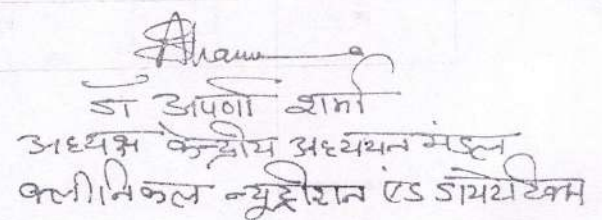 डॉ अपर्णा शर्मा
अध्यक्ष केन्द्रीय अध्ययन मंडल
क्लीनिकल न्यूट्रीशन एंड डायटेटिक्स